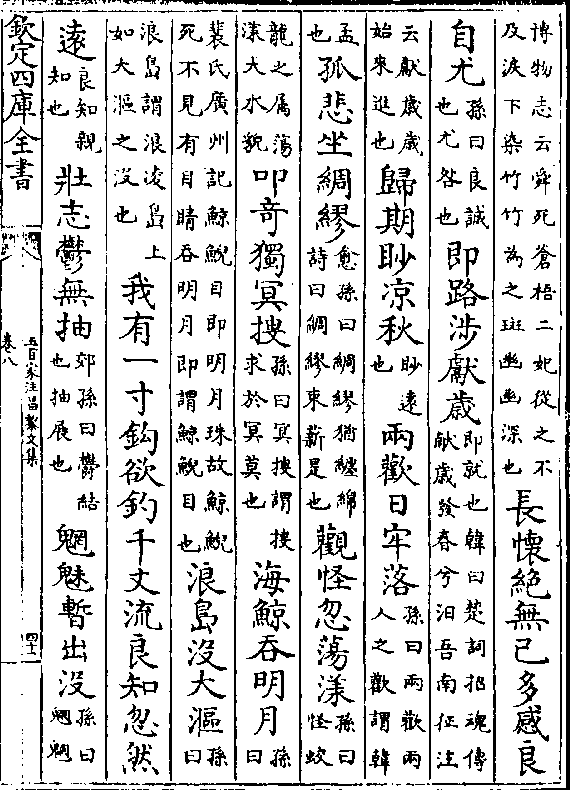 博物志云舜死蒼梧二妃從之不及淚下染竹竹為之斑幽幽深也長懷絶無已多感良
自尤孫曰良誠也尤咎也即路涉獻歳即就也韓曰楚詞招魂傳獻歳發春兮汨吾南征注
云獻歳歳始來進也歸期眇凉秋眇遠也兩歡日牢落孫曰兩歡兩人之歡謂韓
孟也孤悲坐綢繆愈孫曰綢繆猶纒綿詩曰綢繆束薪是也觀怪忽蕩漾孫曰怪蛟
龍之属蕩漾大水貌叩竒獨冥搜孫曰冥搜謂搜求於冥莫也海鯨吞明月孫曰
裴氏廣州記鯨鯢目即明月珠故鯨鯢死不見有目睛吞明月即謂鯨鯢目也浪島没大漚孫曰
浪島謂浪凌島上如大漚之没也我有一寸鈎欲釣千丈流良知忽然
遠良知親知也壯志鬱無抽郊孫曰鬱結也抽展也魍魅暫出没孫曰魍魎
欽定四庫全書
五百家注昌黎文集
卷八